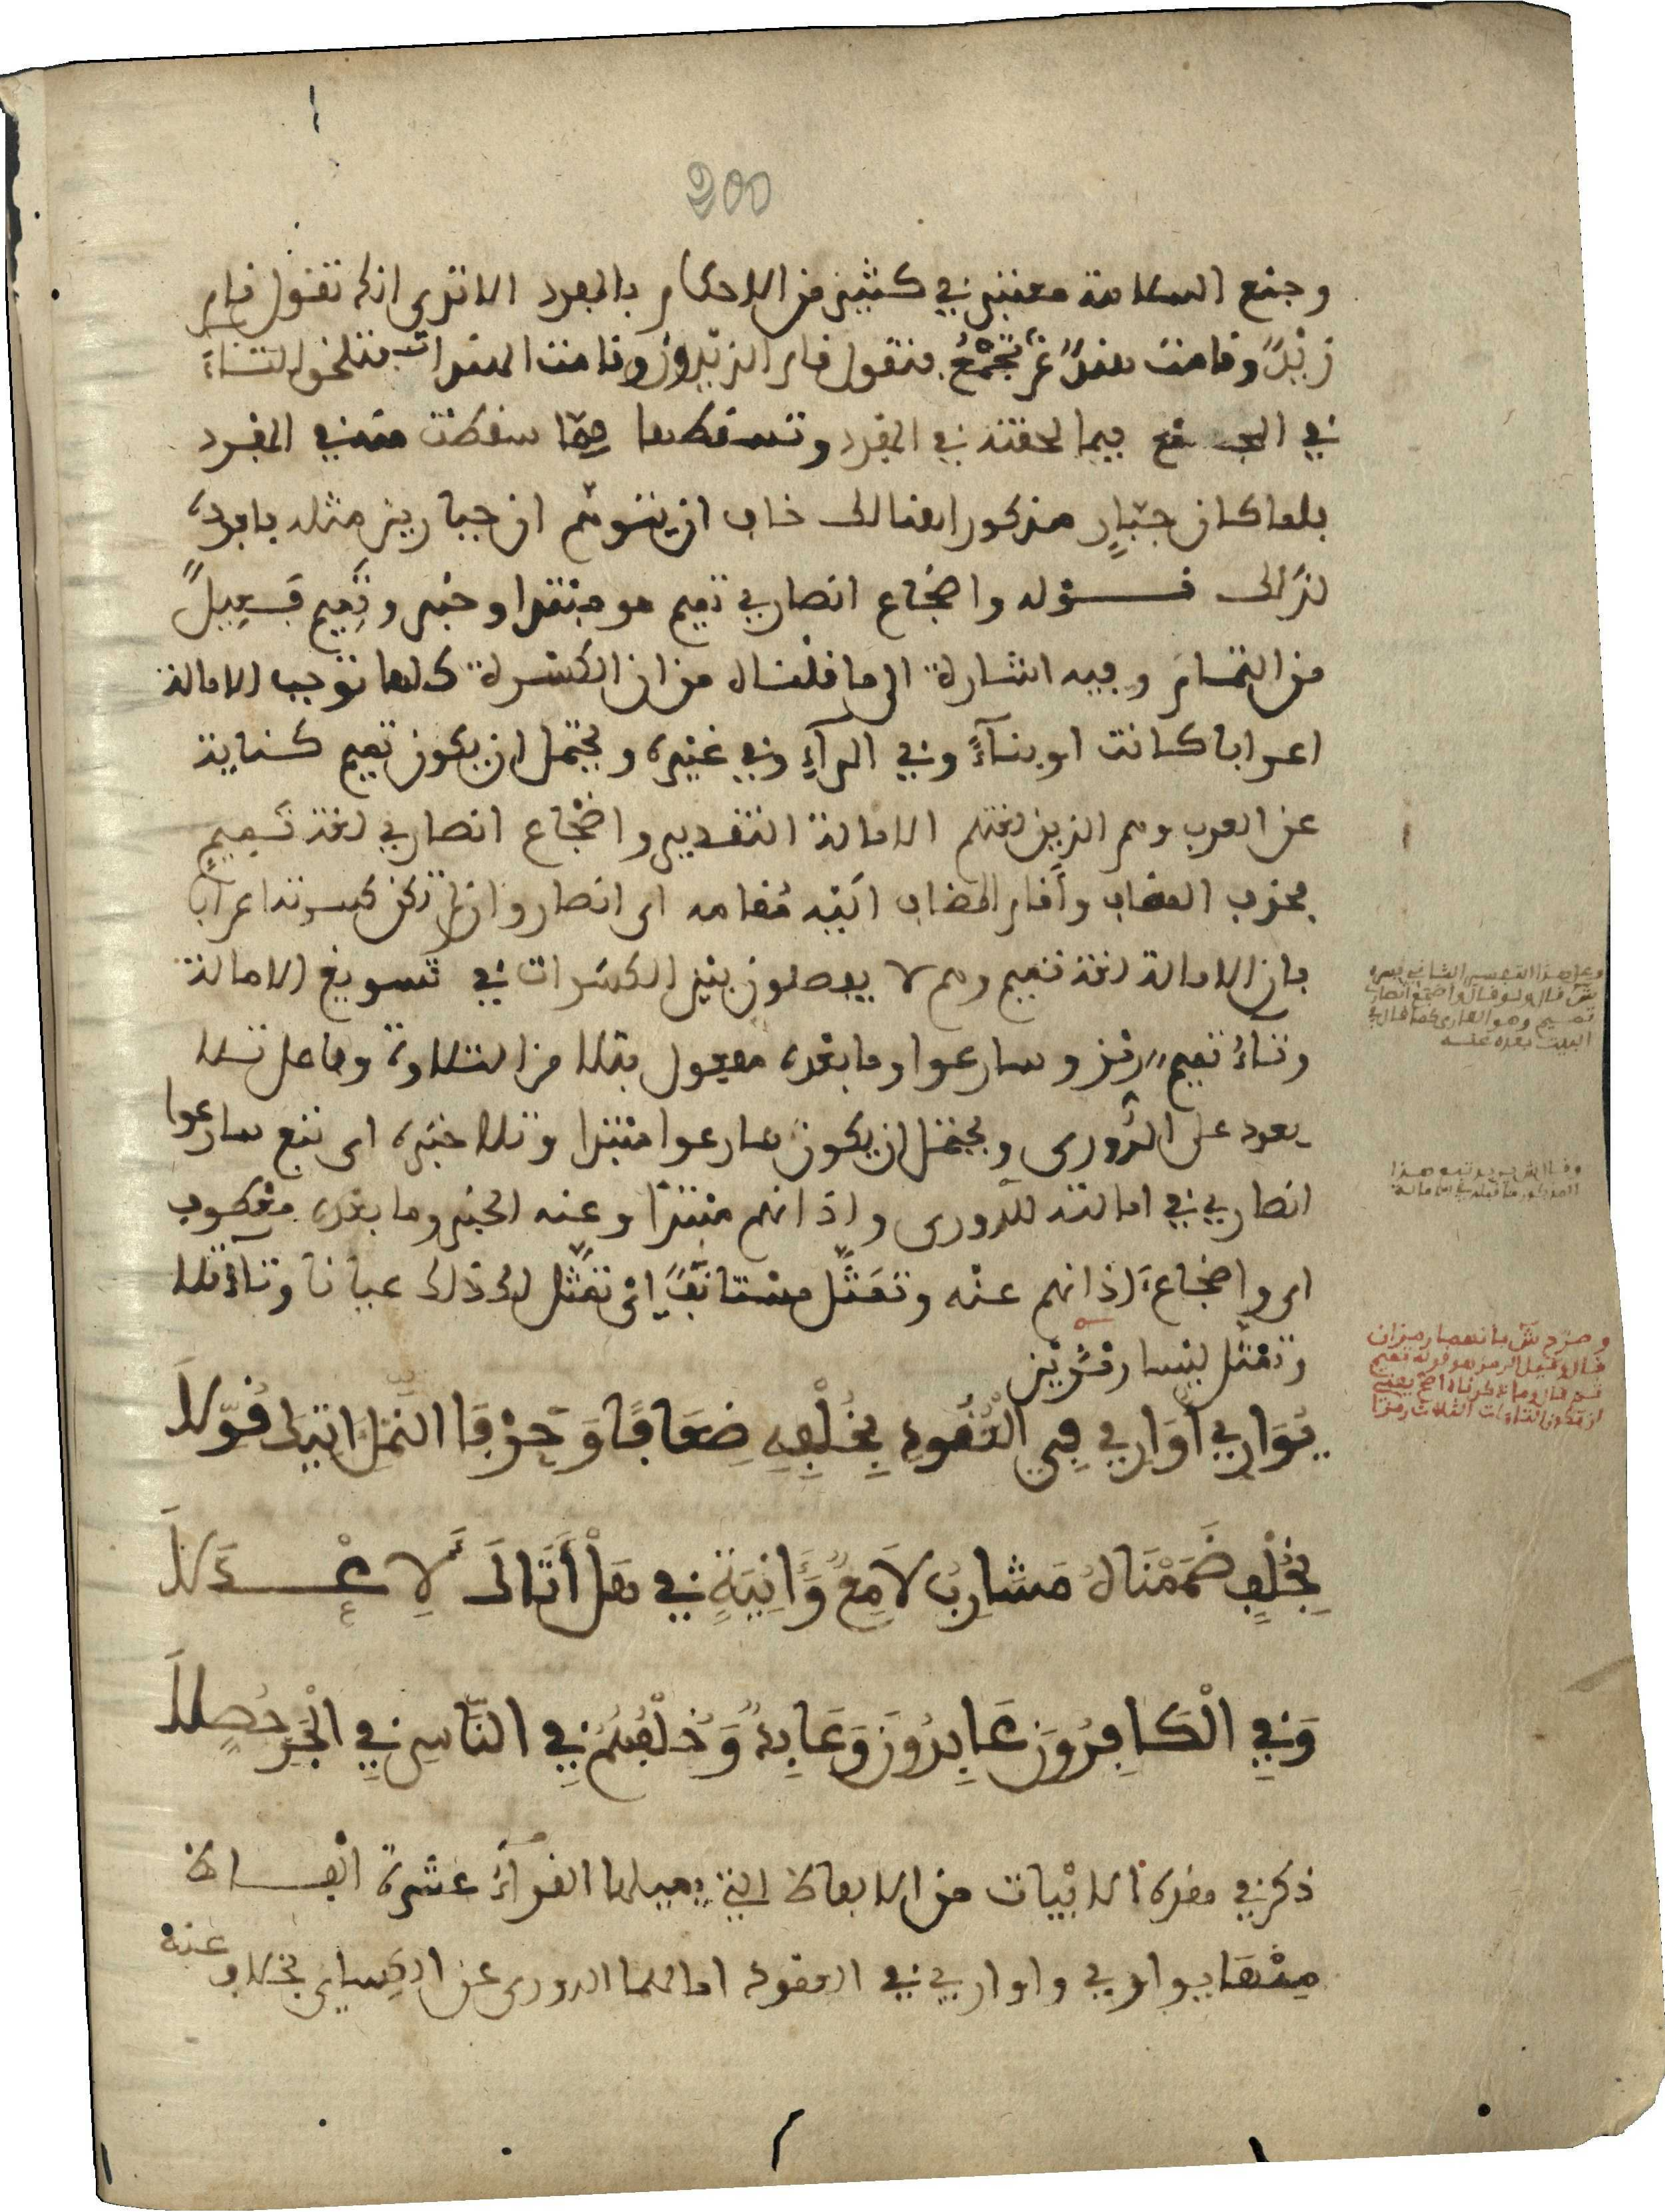 200
وجمع السلامة معتبر في كثير من الاحكام بالمفرد الا ترى انك تقول قام
زيدٌ وقامت هندٌ ثم تجمع فتقول قام الزيدون وقامت الهندات فتلحق التاء
في الجمع فيما لحقته في المفرد وتسقطها مما سقطت منه في المفرد
فلما كان جبّارٍ مذكورا هنالك خاف ان يتوهم ان جبارين مثله فافرده
لذلك قوله واضجاع انصاري تميم هو مبتدا وخبر وتميم فعيلٌ
من التمام وفيه اشارة الى ما قلناه من ان الكسرة كلها توجب الامالة
اعرابا كانت او بناءً وفي الراءِ وفي غيره ويحتمل ان يكون تميم كناية
عن العرب وهم الذين لغتهم الامالة التقدير واضجاع انصاري لغة تميم
فحذف المضاف وأقام المضاف اليه مقامه اي انصار وان لم تكن كسرته اعرابا
فان الامالة لغة تميم وهم لا يفصلون بين الكسرات في تسويغ الامالة
وتاءُ تميم رمز وسارعوا وما بعده مفعول بتلا من التلاوة وفاعل تلا
يعود على الدُّوري ويحتمل ان يكون سارعوا مبتدا وتلا خبره اي تبع سارعوا
انصاري في امالته للدوري واذانهم مبتدأ وعنه الخبر وما بعده معطوف
اي واضجاع اذانهم عنه وتمثّل مستأنفٌ اي تمثّل لك ذلك عيانا وتاءُ تلا
وتمثل ليسا رمزين
يُوَارِي أُوَارِي فِي الْعُقُودِ بِخُلْفِهِ ضِعَافًا وَحَرْفَا النَّمْلِ اتِيكَ قُوَّلاَ
بِخُلْفٍ ضَمَمْنَاهُ مَشَارِبُ لاَمِعٌ وَءَانِيَةٍ فِي هَلْ أَتَاكَ لِأَعْدَلاَ
وَفِي الْكَافِرُونَ عَابِدُونَ وَعَابِدٌ وَخُلْفُهُمُ فِي النَّاسِ فِي الْجَرِّ حُصِّلاَ
ذكر في هذه الابيات من الالفاظ التي يميلها القراءُ عشرة الفاظ
منها يواري واواري في العقود امالهما الدوري عن الكسائي بخلاف عنه
وعلى هذا التفسير الثاني
ش قال ولو قال واضجع انصاري
تميم وهو القاري كما قال في
البيت بعده عنه